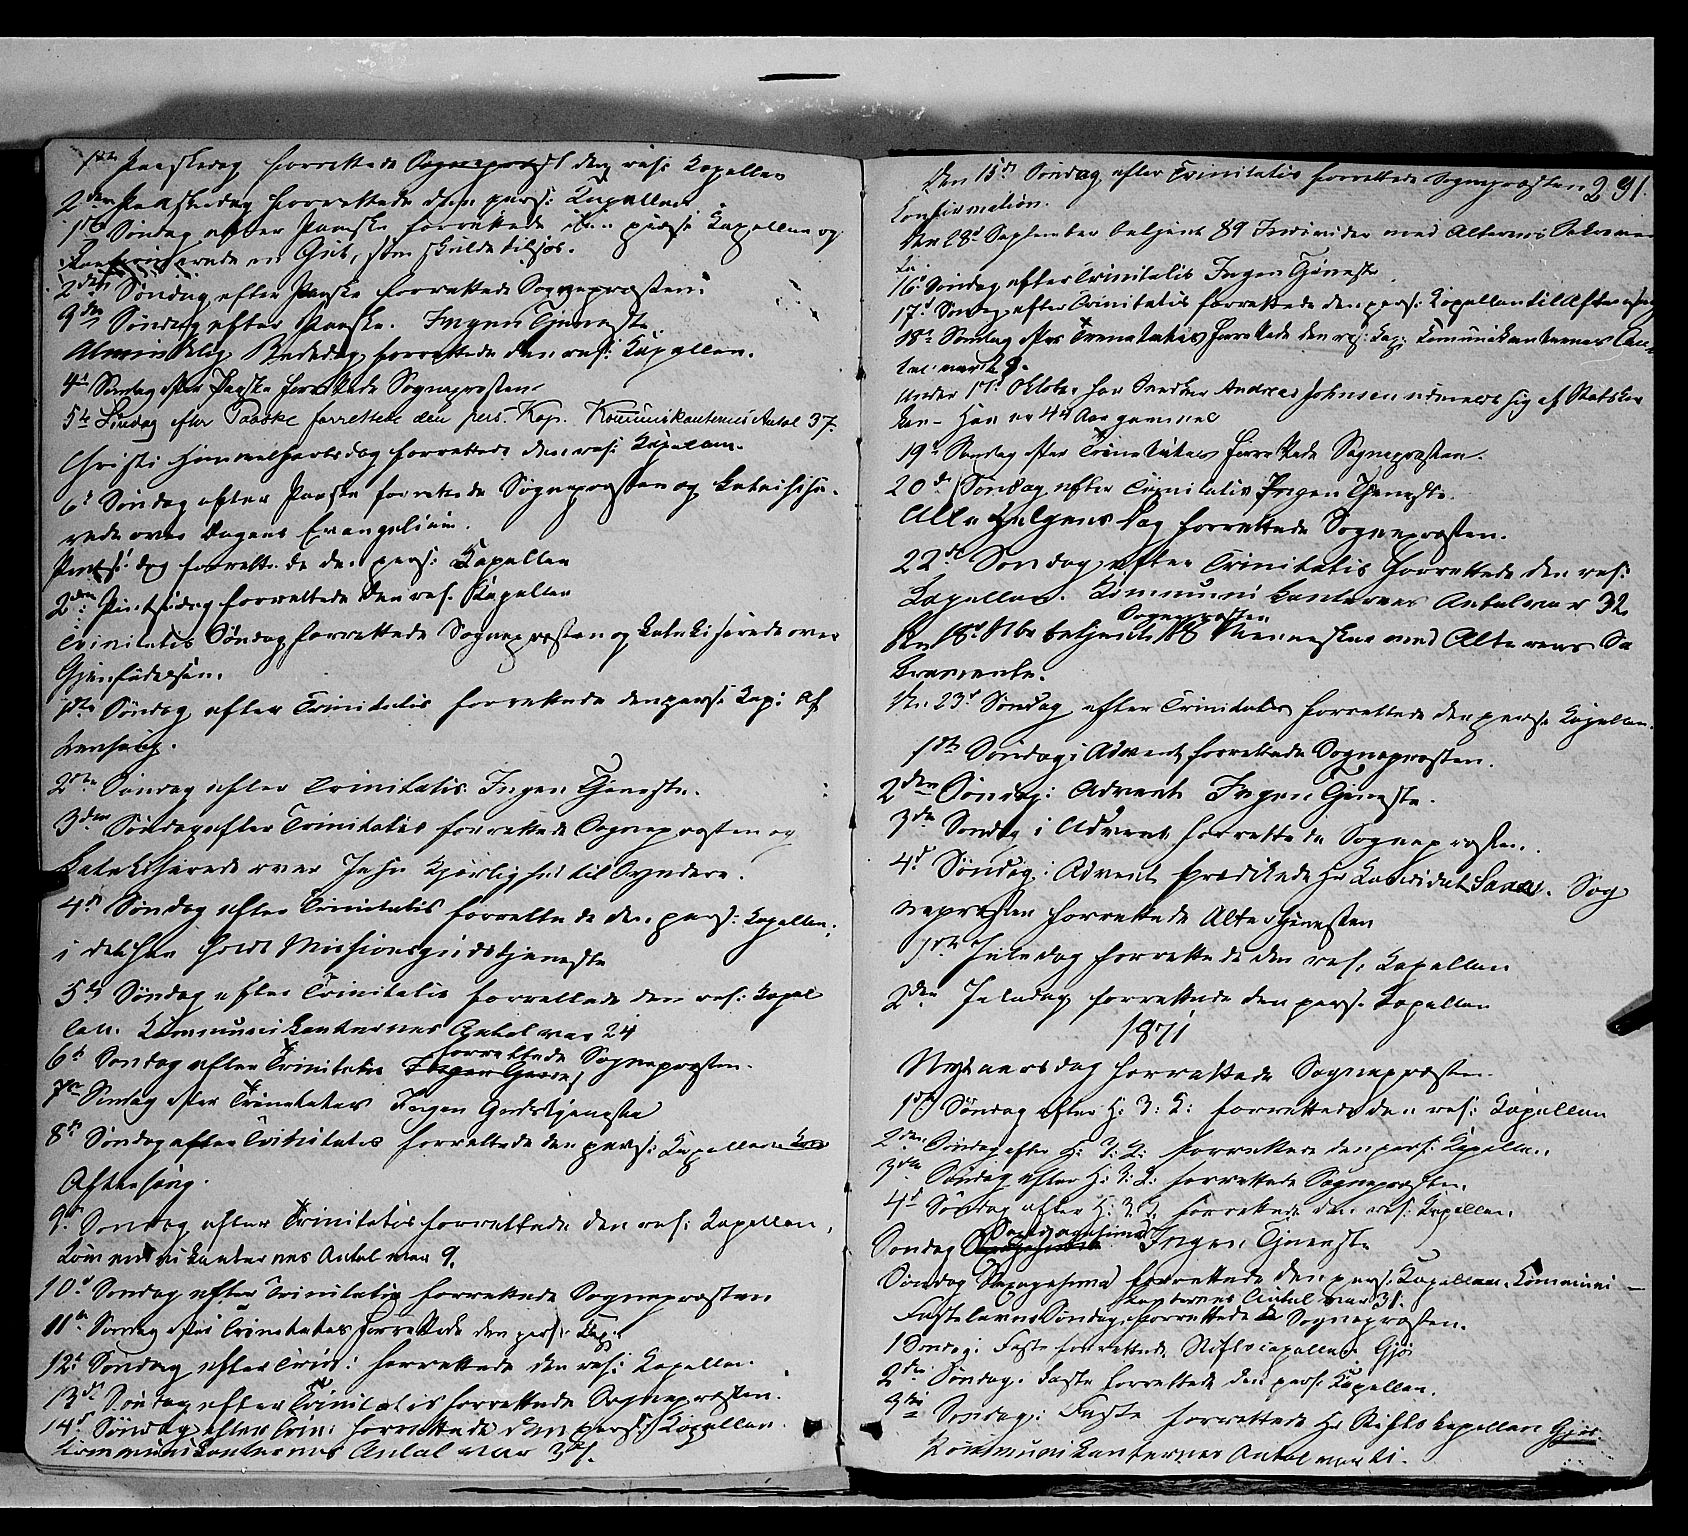 1ste Paaskedag forrettede Sognepræst den res: Kapellan
2den Paaskedag forrettede den pers: Kapellan
1ste Søndag efter Paaske forrettede den pers: Kapellan og
en Gut, som skulde tilsjøs.
2den Søndag efter Paaske forrettede Sognepræsten.
3den Søndag efter Paaske. Ingen Tjeneste.
Almindelig Bededag forrettede den res: Kapellan.
4de Søndag efter Paaske forrettede Sognepræsten.
5te Søndag efter Paaske forrettede den pers. Kap. Kommunikanternes Antal 37.
Christi Himmelfartsdag forrettede den res: Kapellan.
6te Søndag efter Paaske forrettede Sognepræsten og katechise-
rede over Dagens Evangelium.
Pintsedag forrettede den pers: Kapellan
2den Pintsedag forrettede den res. Kapellan
Trinitatis Søndag forrettede Sognepræsten og katekiserede over
Gjenfødelsen.
1ste Søndag efter Trinitatis forrettede den pers: Kap: Af
tensang.
2den Søndag efter Trinitatis Ingen Tjeneste.
3den Søndag efter Trinitatis forrettede Sognepræsten og
katekiserede over Jesu Kjærlighed til Syndere.
4de Søndag efter Trinitatis forrettede den pers: Kapellan,
i det han holdt Missionsgudstjeneste
5te Søndag efter Trinitatis forrettede den res: Kapel
lan. Kommunikanternes Antal var 24
6te Søndag efter Trinitatis forrettede Sognepræsten.
7de Søndag efter Trinitatis Ingen Gudstjeneste
8de Søndag efter Trinitatis forrettede den pers: Kapellan
Aftensang.
9de Søndag efter Trinitatis forrettede den res: Kapellan,
Kommunikanternes Antal var 9.
10de Søndag efter Trinitatis forrettede Sognepræsten
11te Søndag efter Trinitatis forrettede den pers: Kap:
12te Søndag efter Trin: forrettede den res: Kapellan.
13de Søndag efter Trinitatis forrettede Sognepræsten.
14de Søndag efter Trin: forrettede den pers: Kapellan.
Kommunikanternes Antal var
291.
Den 15de Søndag efter Trinitatis forrettede Sognepræsten
Confirmation.
Den 28de September betjent 89 Individer med Alterens Sakramen
te.
16de Søndag efter Trinitatis Ingen Tjeneste.
17de Søndag efter Trinitatis forrettede den pers: Kapellan til Aftensang
18de Søndag efter Trinitatis forrettede den res: Kap: Kommunikanternes An-
tal var
Under 17de Oktober har Andreas Johnsen udmeldt sig af Statskir
ken. Han er 44 Aar gammel
19de Søndag efter Trinitatis forrettede Sognepræsten.
20de Søndag efter Trinitatis Ingen Tjeneste.
Alle Helgens Dag forrettede Sognepræsten.
22de Søndag efter Trinitatis forrettede den res:
Kapellan. Kommunikanternes Antal var 32
Sognepræsten
Den 18de Nbr betjente 18 Mennesker med Alterens Sa
kramente.
Den 23de Søndag efter Trinitatis forrettede den pers: Kapellan.
1ste Søndag i Advent forrettede Sognepræsten.
2den Søndag i Advent Ingen Tjeneste.
3die Søndag i Advent forrettede Sognepræsten.
4de Søndag i Advent prædikede Hr Kandidat Sog
nepræsten forrettede Altertjenesten
1ste Juledag forrettede den res: Kapellan
2den Juledag forrettede den pers: Kapellan
1871
Nytaarsdag forrettede Sognepræsten.
1ste Søndag efter H: 3: K: forrettede den res: Kapellan
2den Søndag efter H: 3: K: forrettede den pers: Kapellan.
3die Søndag efter H: 3: K: forrettede Sognepræsten.
4de Søndag efter H: 3: K. forrettede den res: Kapellan.
Septuagesima
Søndag Ingen Tjeneste
Søndag Sexagesima forrettede den pers: Kapellan. Kommuni-
kanternes Antal var 31.
Fastelavns Søndag forrettede Sognepræsten.
1 Søndag i Faste forrettede Stiftscapellan Gjør
2den Søndag i Faste forrettede den pers: Kapellan.
3die Søndag i Faste forrettede Hr Stiftskapellan Gjør.
Kommunikanternes Antal var